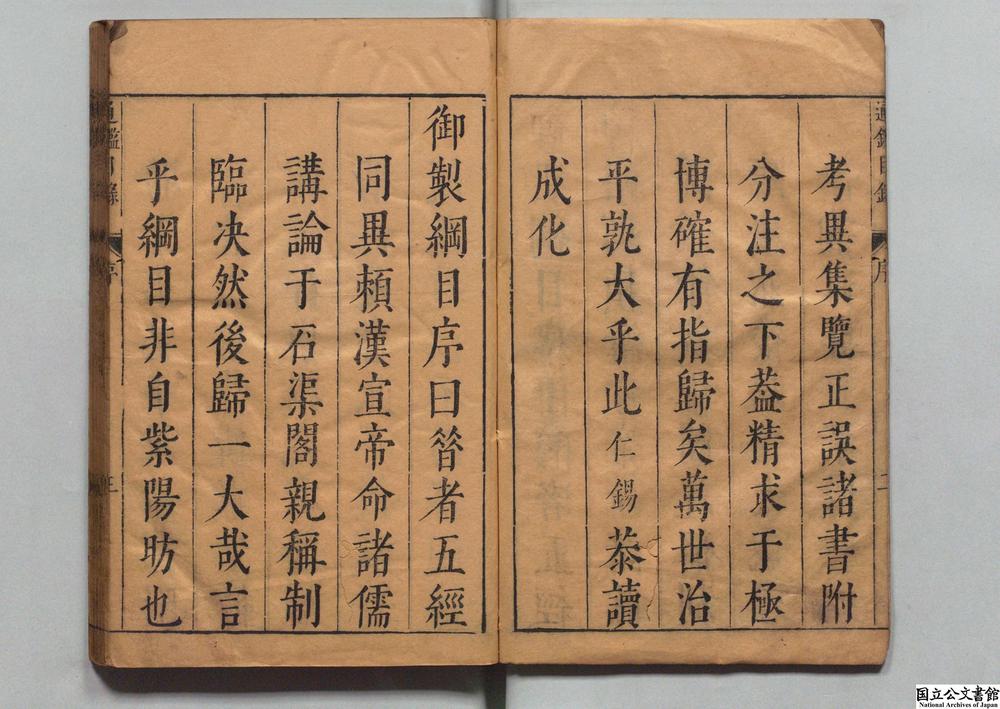 考異集覽正誤諸書附
分注之下葢精求于極
博確有指歸矣萬世治
平孰大乎此仁錫恭讀
成化
御製綱目序曰昝者五經
同異賴漢宣帝命諸儒
講論于石渠閣親稱制
臨决然後歸一大哉言
乎綱目非自紫陽昉也
通鑑目錄
序
二
通鑑目錄
序
三
国立公文書館
National Archives of Japan